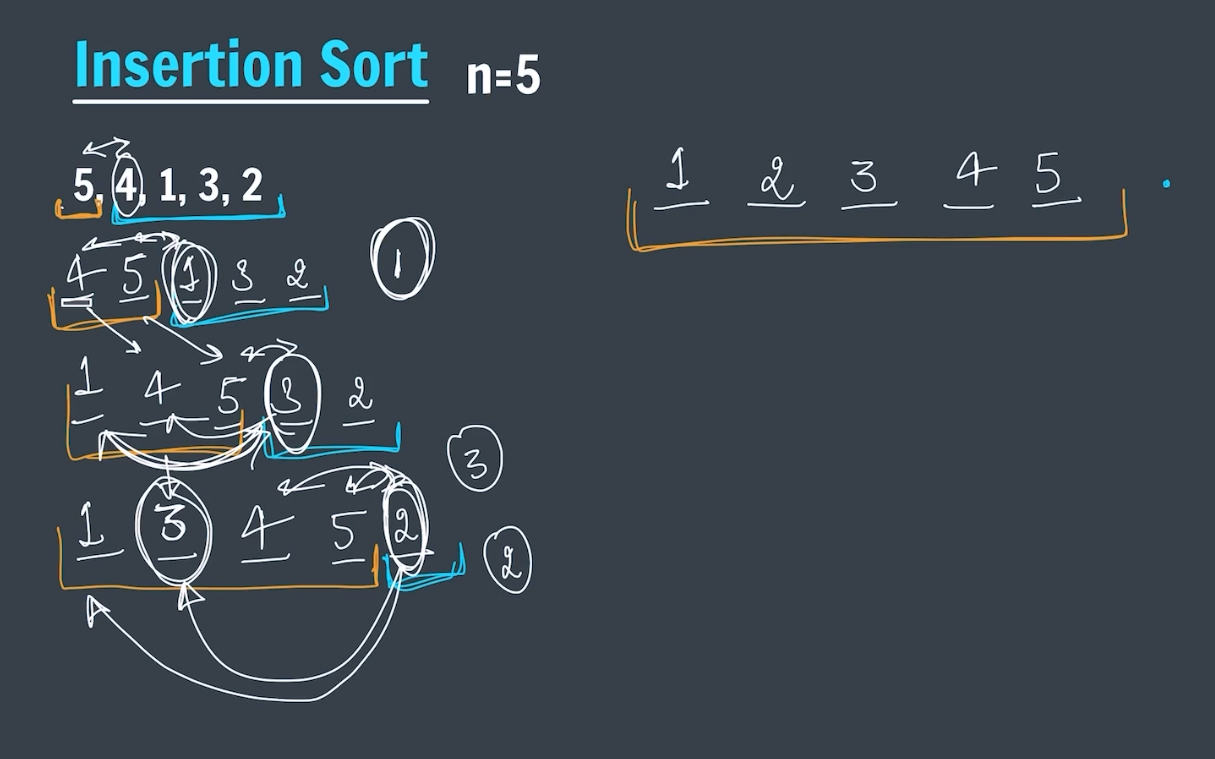 Insertion Sort n=5
5, 4, 1, 3, 2
4 5 1 3 2
1
1 4 5 3 2
3
1 3 4 5 2
2
1 2 3 4 5